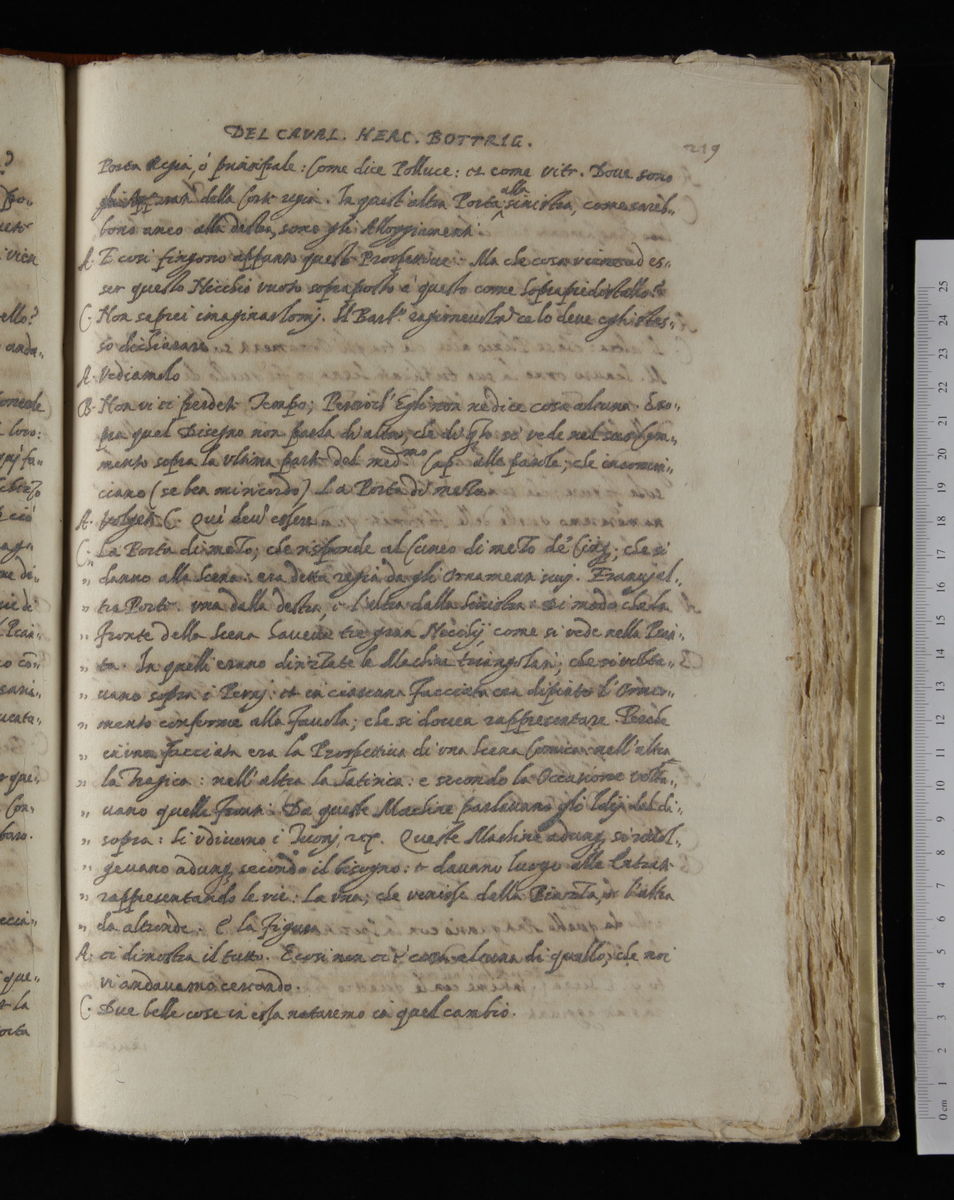 DEL CAVAL. HERC. BOTTRIG.
219
Porta Regia, ò principale: Come dice Polluce: et come Vitr. Dove sono
della Corte regia. In quest'altra Porta alla sinistra, come sareb-
bono anco alla destra, sono gli Alloggiamenti.
A. E così fingono appunto queste Prospettive. Ma che cosa viene ad es-
ser questo Nicchio vuoto sopraposto à questo come Sopra piedistallo?
C. Non saprei imaginarlomi. Il Barb.º ce lo deve egli stes-
so dichiarare
A. Vediamolo
B. Non vi si perdete Tempo; Perioch' Egli non ne dice cosa alcuna. E so-
pra quel Disegno non parla di altro, che di q̃to si vede nel
mento sopra la ultima parte del med.mo Cap. alle parole; che incomin-
ciano (se ben mi ricordo) La Porta di mezzo
A. C. Qui deve essere
C. La Porta di mezo; che risponde al Cuneo di mezo de' ; che si
" danno alla Scena: era detta regia da gli Ornamenti suoi. Eranvi al-
" tre Porte. una dalla destra, e l'altra dalla Sinistra: di modo che la
" fronte della Scena haveva tre gran Nicchij come si vede nella Pian-
" ta. In quelli erano dirizzate le Machine triangolari; che si volta-
" vano sopra i Perni: et in ciascuna facciata era dipinto l'Orna-
" mento conforme alla favola; che si dovea rappresentare Perche
" in una facciata era la Prospettiva di una Scena Comica: nell'altra
" la Tragica: nell'altra la Satirica: e secondo la Occasione volta-
" vano quelle fronti. Da queste Machine parlavano gli Idij del di
" sopra: Si udivano i Tuoni, Queste Machine adunq; si rivol-
" gevano adunq; secondo il bisogno: et davano luogo alle Entrate
" rappresentando le vie. La una; che venisse dalla Piazza, et l'altra
" da altronde. E la figura
A. ci dimostra il tutto. E così non ci è cosa alcuna di quello, che noi
vi andavamo cercando.
C. Due belle cose in essa notaremo in quel cambio.